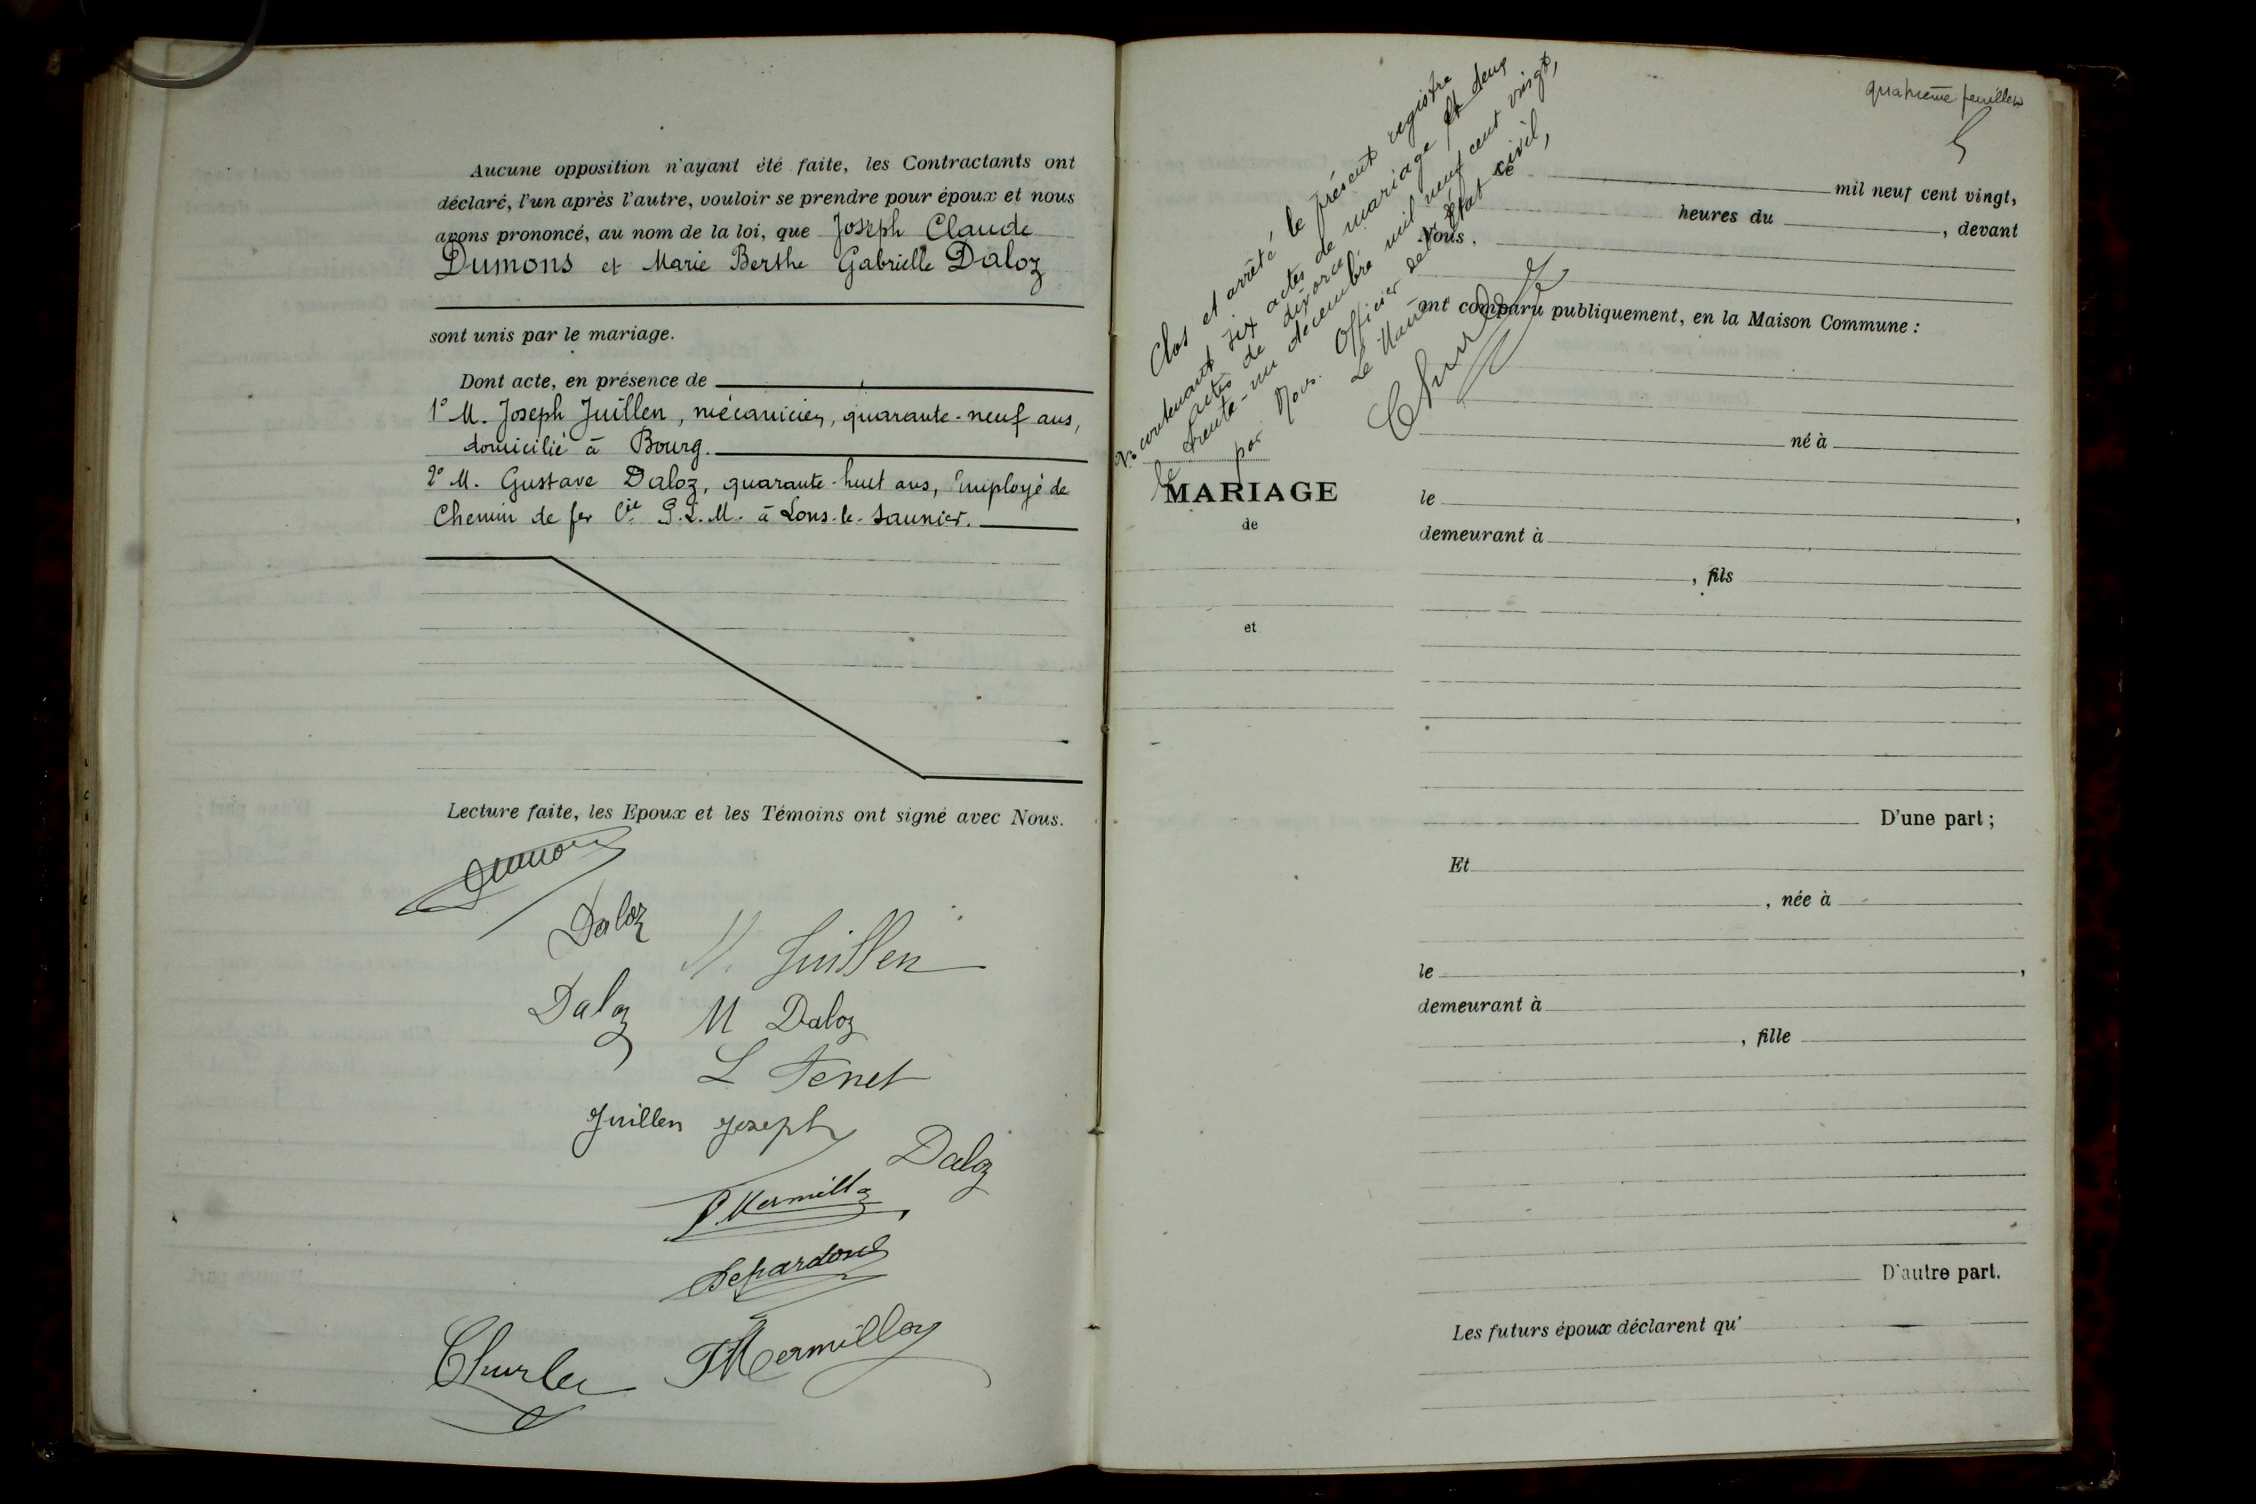 Aucune opposition n'ayant été faite, les Contractants ont
déclaré, l'un après l'autre, vouloir se prendre pour époux et nous
avons prononcé, au nom de la loi, que Joseph Claude
Dumons et Marie Berthe Gabrielle Daloz
sont unis par le mariage.
Dont acte, en présence de
1° M. Joseph Juillen, mécanicien, quarante-neuf ans,
domicilié à Bourg.
2° M. Gustave Daloz, quarante-huit ans, Employé de
Chemin de fer Cie P.L.M. à Lons-le-Saunier.
Lecture faite, les Epoux et les Témoins ont signé avec Nous.
Dumons
Daloz
M. Juillen
Daloz
M Daloz
L Tenet
Juillen Joseph
Daloz
P. Mermillo
Depardon
Churlet
Mermilloz
quatrième feuillet
5
Clos et arrêté, le présent registre
contenant six actes de mariage et deux
actes de divorce
le trente-un décembre mil neuf cent vingt,
par Nous. Officier de l'état civil,
Le Maire
Churlet
N°
MARIAGE
de
et
Le mil neuf cent vingt,
heures du , devant
Nous,
ont comparu publiquement, en la Maison Commune :
né à
le ,
demeurant à
, fils
D'une part ;
Et
, née à
le ,
demeurant à
, fille
D'autre part.
Les futurs époux déclarent qu'